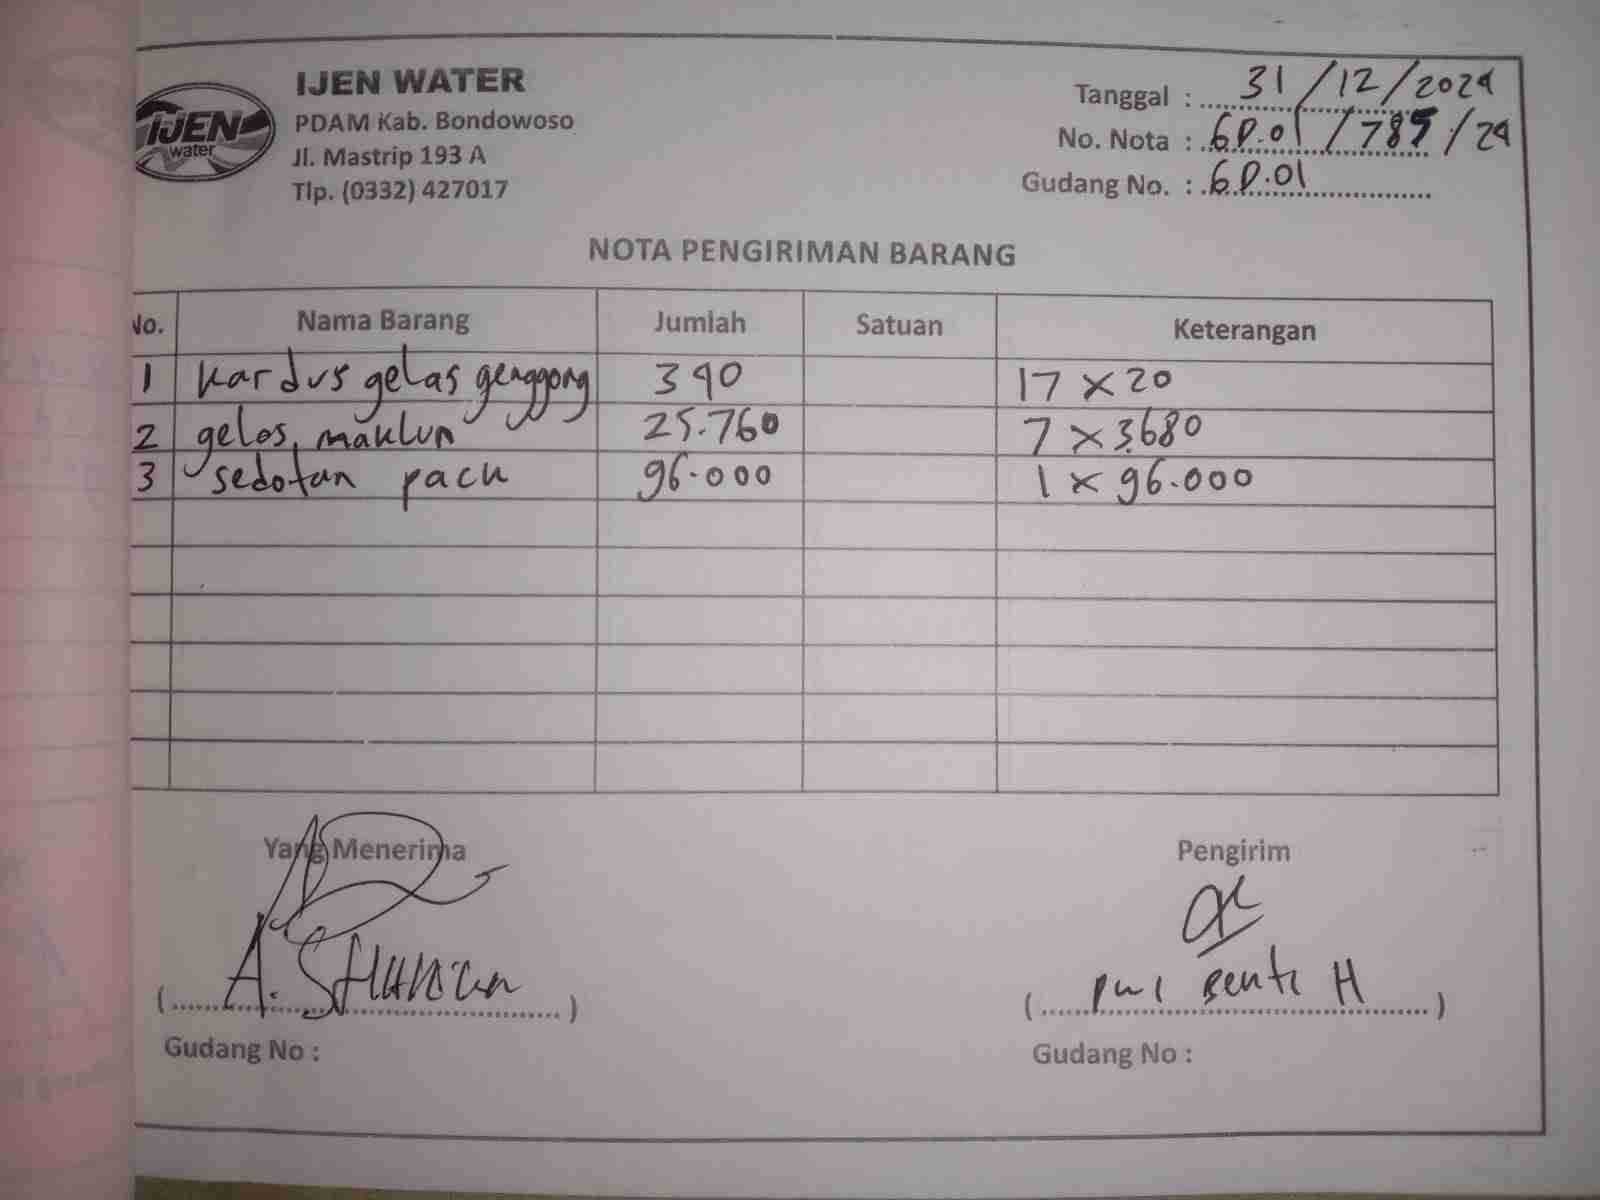 IJEN WATER
PDAM Kab. Bondowoso
Jl. Mastrip 193 A
Tlp. (0332) 427017
IJEN
water
Tanggal : 31/12/2024
No. Nota : GD.01/785/24
Gudang No. : GD.01
NOTA PENGIRIMAN BARANG
No. Nama Barang Jumlah Satuan Keterangan
1 kardus gelas genggong 340 17 x 20
2 gelas maklun 25.760 7 x 3.680
3 sedotan pack 96.000 1 x 96.000
Yang Menerima Pengirim
(A.) (H)
Gudang No : Gudang No :